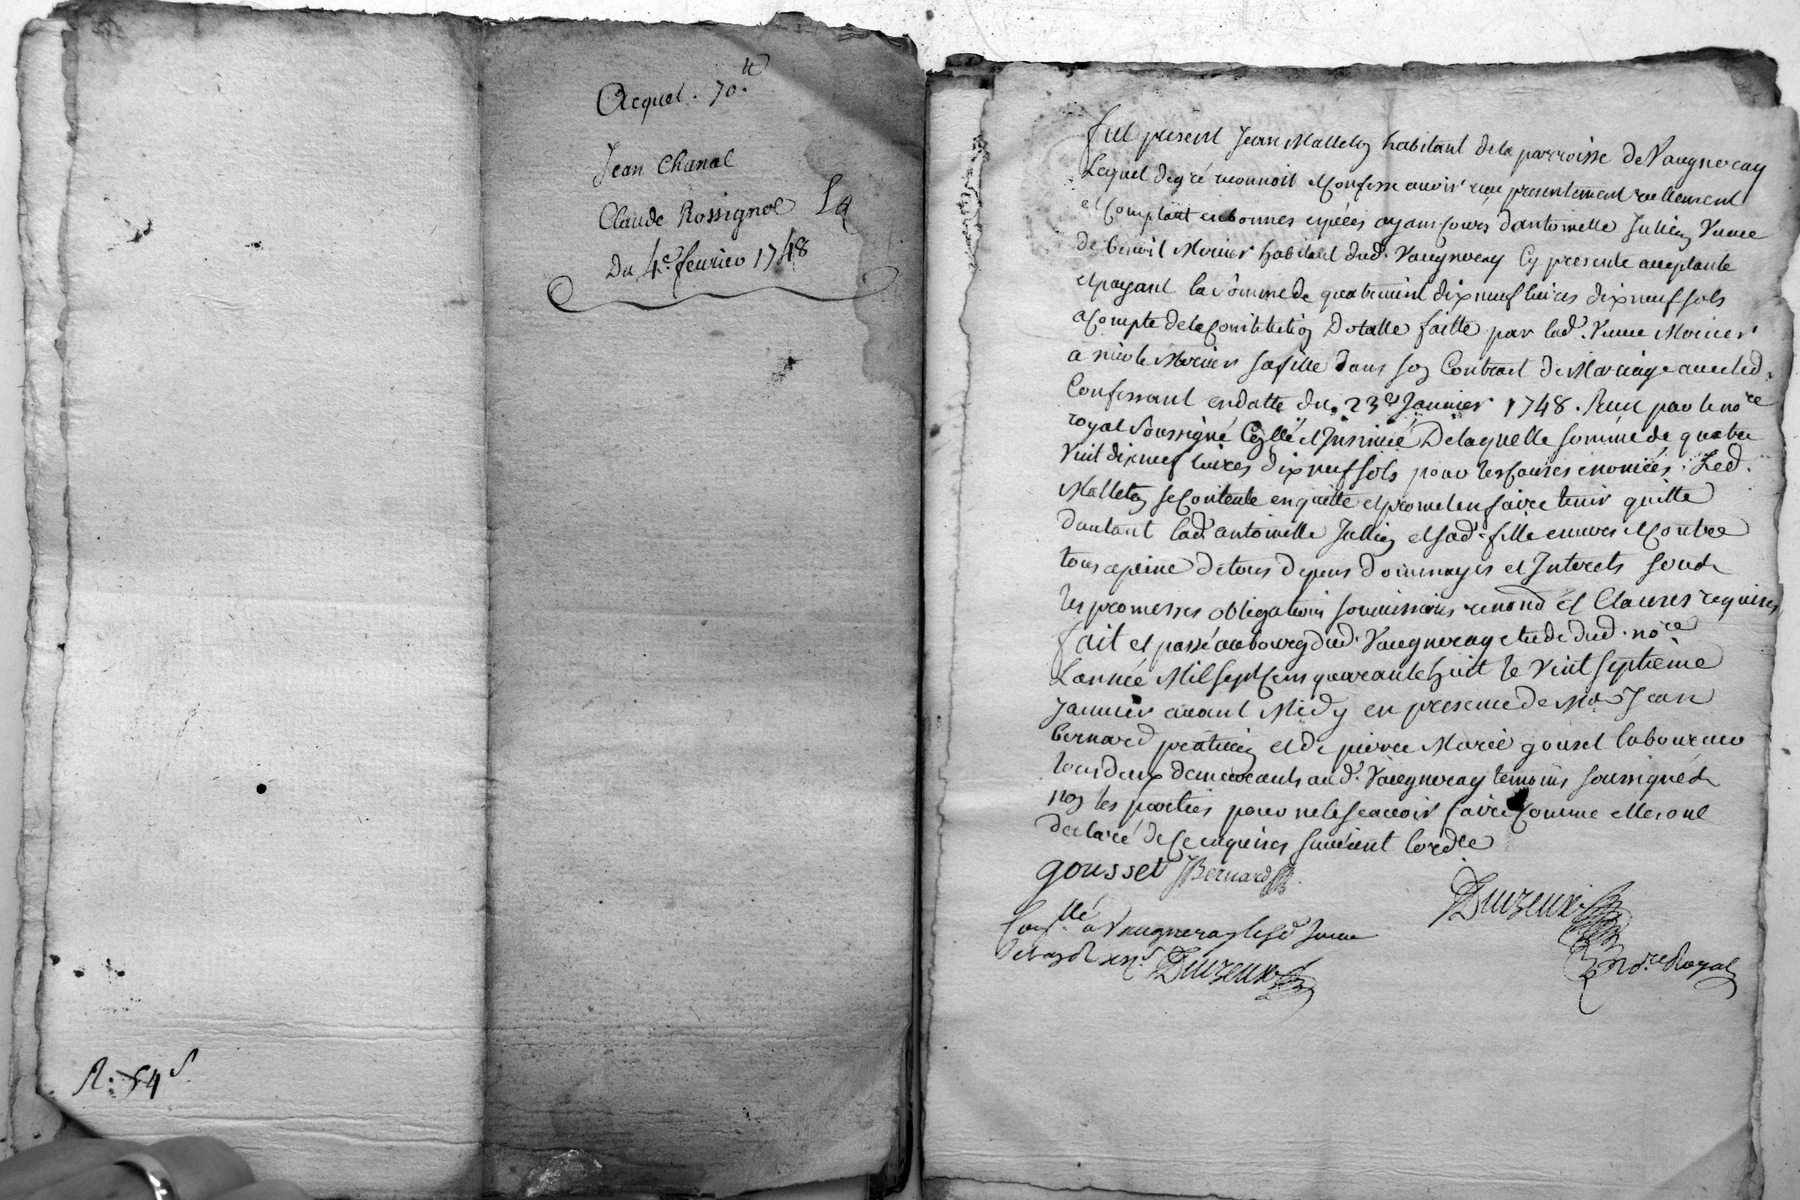 Acquet . 70.tt
Jean Chanal
Claude Rossignol
Du 4e. fevrier 1748
R: 54 s
fut present Jean Malleton habitant de la parroisse de Vaugneray
Lequel de gré reconnoit et Confesse avoir reçu presentement reellement
et Comptant en bonnes especes ayant Cours d'antoinette Jullien Veuve
de benoit Morier habitant dud. Vaugneray Cy presente acceptante
et payant la Somme de quatrevint dixneuf livres dixneuf sols
a Compte de la Constitution Dotalle faitte par lad. Veuve Morier
a nicole Morier sa fille dans son Contract de Mariage avec led.
Confessant en datte du 23e Janvier 1748. Reçu par le nore
royal Soussigné Coллé et Insinué De laquelle somme de quatre
Vint dixneuf livres dixneuf sols pour les Causes enoncées. Led.
Malleton se Contente en quitte et promet en faire tenir quitte
dautant lad. antoinette Jullien et sad. fille envers et Contre
tous a peine de tous depens dommages et Interets sous
les promesses obligations soumissions renond et Clauses requises
fait et passé au bourg dud. Vaugneray etude dud. nore
L'année Mil sept Cens quarante huit le Vint septieme
Janvier avant Midy en presence de Me Jean
bernard praticien et de pierre Marie gouset laboureur
tous deux demeurants aud. Vaugneray temoins soussignés
non les parties pour ne le scavoir faire Comme elles ont
declaré de ce enquises suivant lordre
gousset JBernard
Duvzeux
Conllé a Vaugneray le sd Jour
Duvzeux
nore Royal